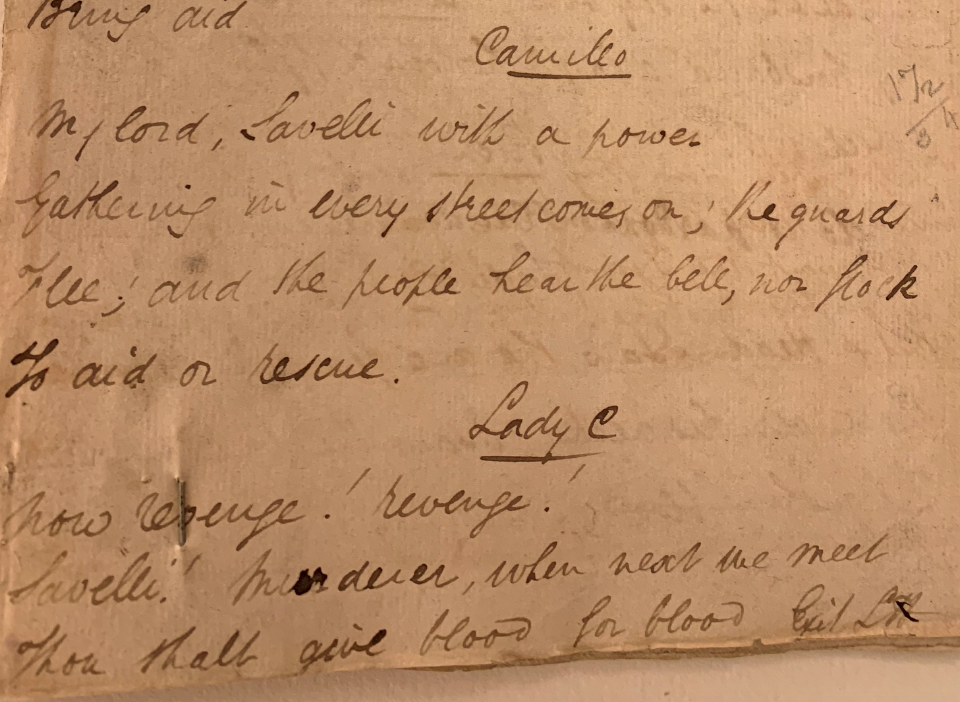 Bring aid
Camillo
My lord, Savelli with a power
Gathering in every street comes on; the guards
Flee; and the people hear the bell, nor flock
To aid or rescue.
Lady C
Now revenge! revenge!
Savelli! Murderer, when next we meet
Thou shalt give blood for blood Exit